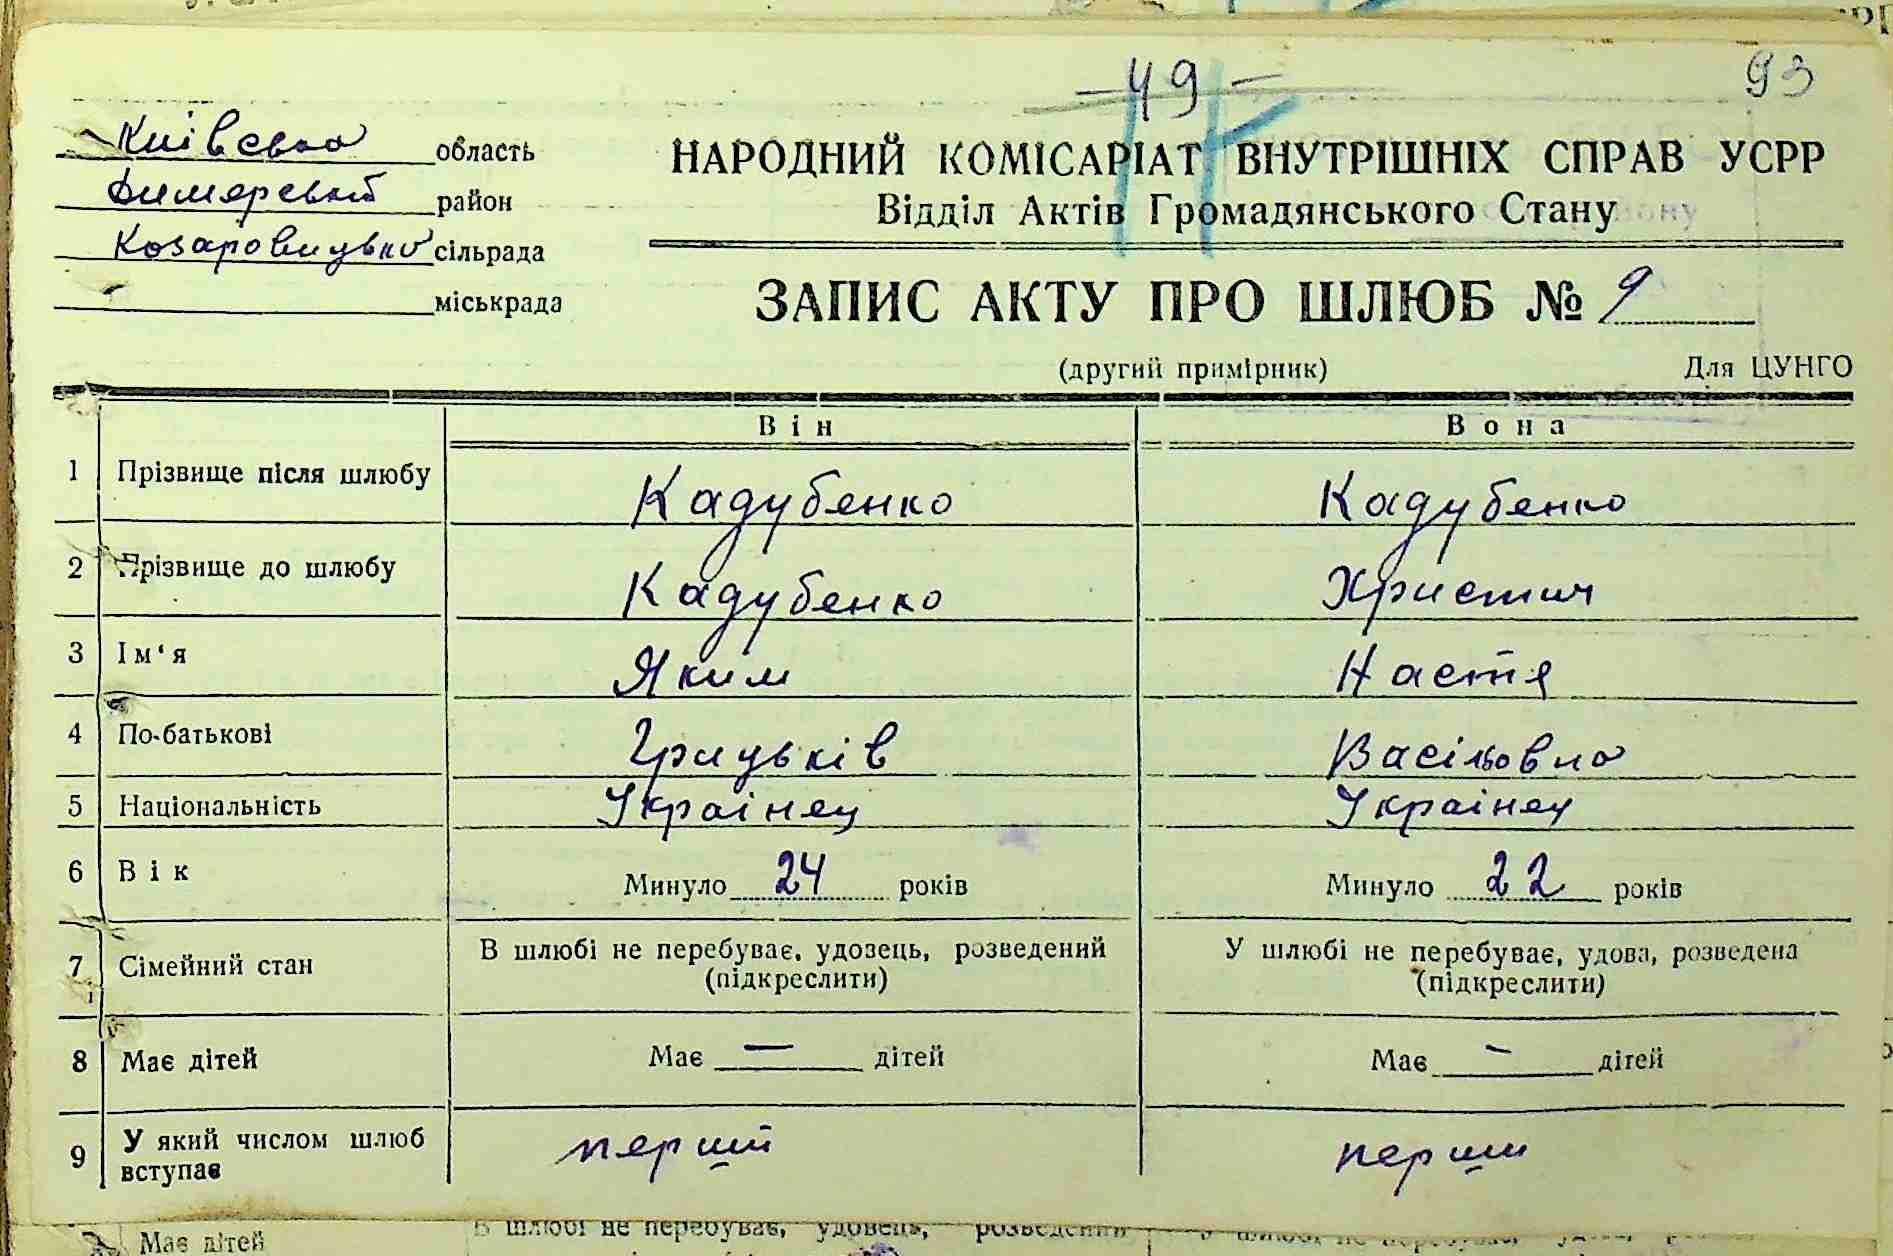 - 49 -
93
Київська область
Димерский район
Козаровицька сільрада
міськрада
НАРОДНИЙ КОМІСАРІАТ ВНУТРІШНІХ СПРАВ УСРР
Відділ Актів Громадянського Стану
ЗАПИС АКТУ ПРО ШЛЮБ № 9
(другий примірник) Для ЦУНГО
Він Вона
1 Прізвище після шлюбу Кадубенко Кадубенко
2 Прізвище до шлюбу Кадубенко Христич
3 Ім‘я Яким Настя
4 По-батькові Грицьків Васільовна
5 Національність Украінец Украінец
6 Вік Минуло 24 років Минуло 22 років
7 Сімейний стан В шлюбі не перебуває, удовець, розведений У шлюбі не перебуває, удова, розведена
(підкреслити) (підкреслити)
8 Має дітей Має — дітей Має - дітей
9 У який числом шлюб вступає перший перши
Має дітей В шлюбі не перебуває, удовець, розведений